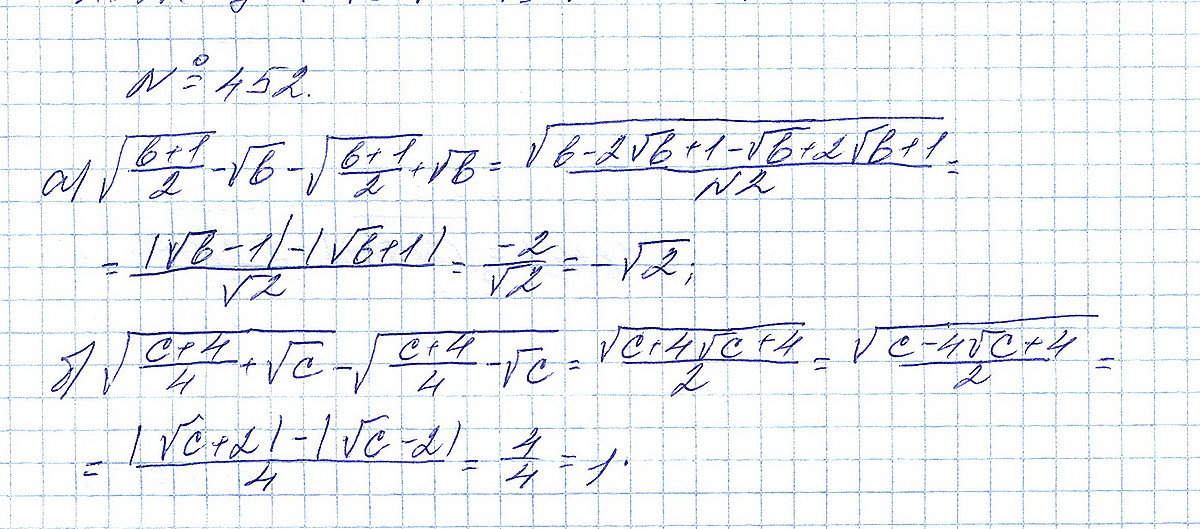 № 452.
а) √((b+1)/2) - √b - √((b+1)/2) + √b = √(b - 2√b + 1 - √b + 2√b + 1)/√2 =
= (|√b - 1| - |√b + 1|)/√2 = -2/√2 = -√2;
б) √((c+4)/4 + √c) - √((c+4)/4 - √c) = √(c + 4√c + 4)/2 = √(c - 4√c + 4)/2 =
= (|√c + 2| - |√c - 2|)/4 = 4/4 = 1.